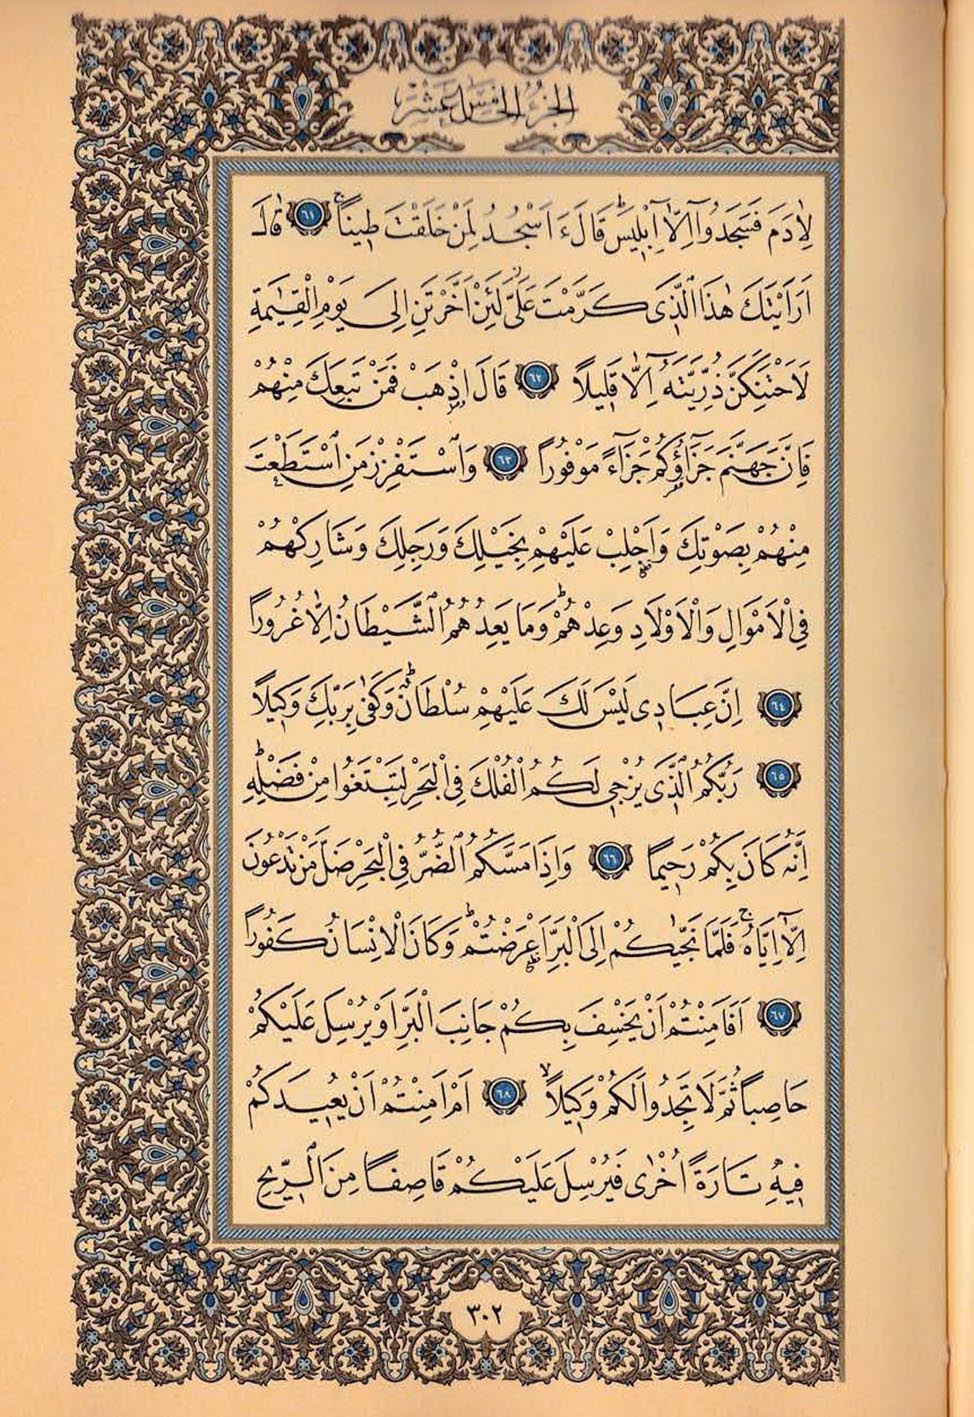 الجزء الخامس عشر
لِاٰدَمَ فَسَجَدُٓوا اِلَّٓا اِبْلِيسَۜ قَالَ ءَاَسْجُدُ لِمَنْ خَلَقْتَ طِيناًۚ ﴿٦١﴾ قَالَ
اَرَاَيْتَكَ هٰذَا الَّذ۪ي كَرَّمْتَ عَلَيَّۘ لَئِنْ اَخَّرْتَنِ اِلٰى يَوْمِ الْقِيٰمَةِ
لَاَحْتَنِكَنَّ ذُرِّيَّتَهُٓ اِلَّا قَل۪يلاً ﴿٦٢﴾ قَالَ اذْهَبْ فَمَنْ تَبِعَكَ مِنْهُمْ
فَاِنَّ جَهَنَّمَ جَزَٓاؤُ۬كُمْ جَزَٓاءً مَوْفُوراً ﴿٦٣﴾ وَاسْتَفْزِزْ مَنِ اسْتَطَعْتَ
مِنْهُمْ بِصَوْتِكَ وَاَجْلِبْ عَلَيْهِمْ بِخَيْلِكَ وَرَجِلِكَ وَشَارِكْهُمْ
فِي الْاَمْوَالِ وَالْاَوْلَادِ وَعِدْهُمْۜ وَمَا يَعِدُهُمُ الشَّيْطَانُ اِلَّا غُرُوراً
﴿٦٤﴾ اِنَّ عِبَاد۪ي لَيْسَ لَكَ عَلَيْهِمْ سُلْطَانٌۜ وَكَفٰى بِرَبِّكَ وَك۪يلاً
﴿٦٥﴾ رَبُّكُمُ الَّذ۪ي يُزْج۪ي لَكُمُ الْفُلْكَ فِي الْبَحْرِ لِتَبْتَغُوا مِنْ فَضْلِه۪ۜ
اِنَّهُ كَانَ بِكُمْ رَح۪يماً ﴿٦٦﴾ وَاِذَا مَسَّكُمُ الضُّرُّ فِي الْبَحْرِ ضَلَّ مَنْ تَدْعُونَ
اِلَّٓا اِيَّاهُۚ فَلَمَّا نَجّٰيكُمْ اِلَى الْبَرِّ اَعْرَضْتُمْۜ وَكَانَ الْاِنْسَانُ كَفُوراً
﴿٦٧﴾ اَفَاَمِنْتُمْ اَنْ يَخْسِفَ بِكُمْ جَانِبَ الْبَرِّ اَوْ يُرْسِلَ عَلَيْكُمْ
حَاصِباً ثُمَّ لَا تَجِدُوا لَكُمْ وَك۪يلاًۙ ﴿٦٨﴾ اَمْ اَمِنْتُمْ اَنْ يُع۪يدَكُمْ
ف۪يهِ تَارَةً اُخْرٰى فَيُرْسِلَ عَلَيْكُمْ قَاصِفاً مِنَ الرّ۪يحِ
٣٠٢